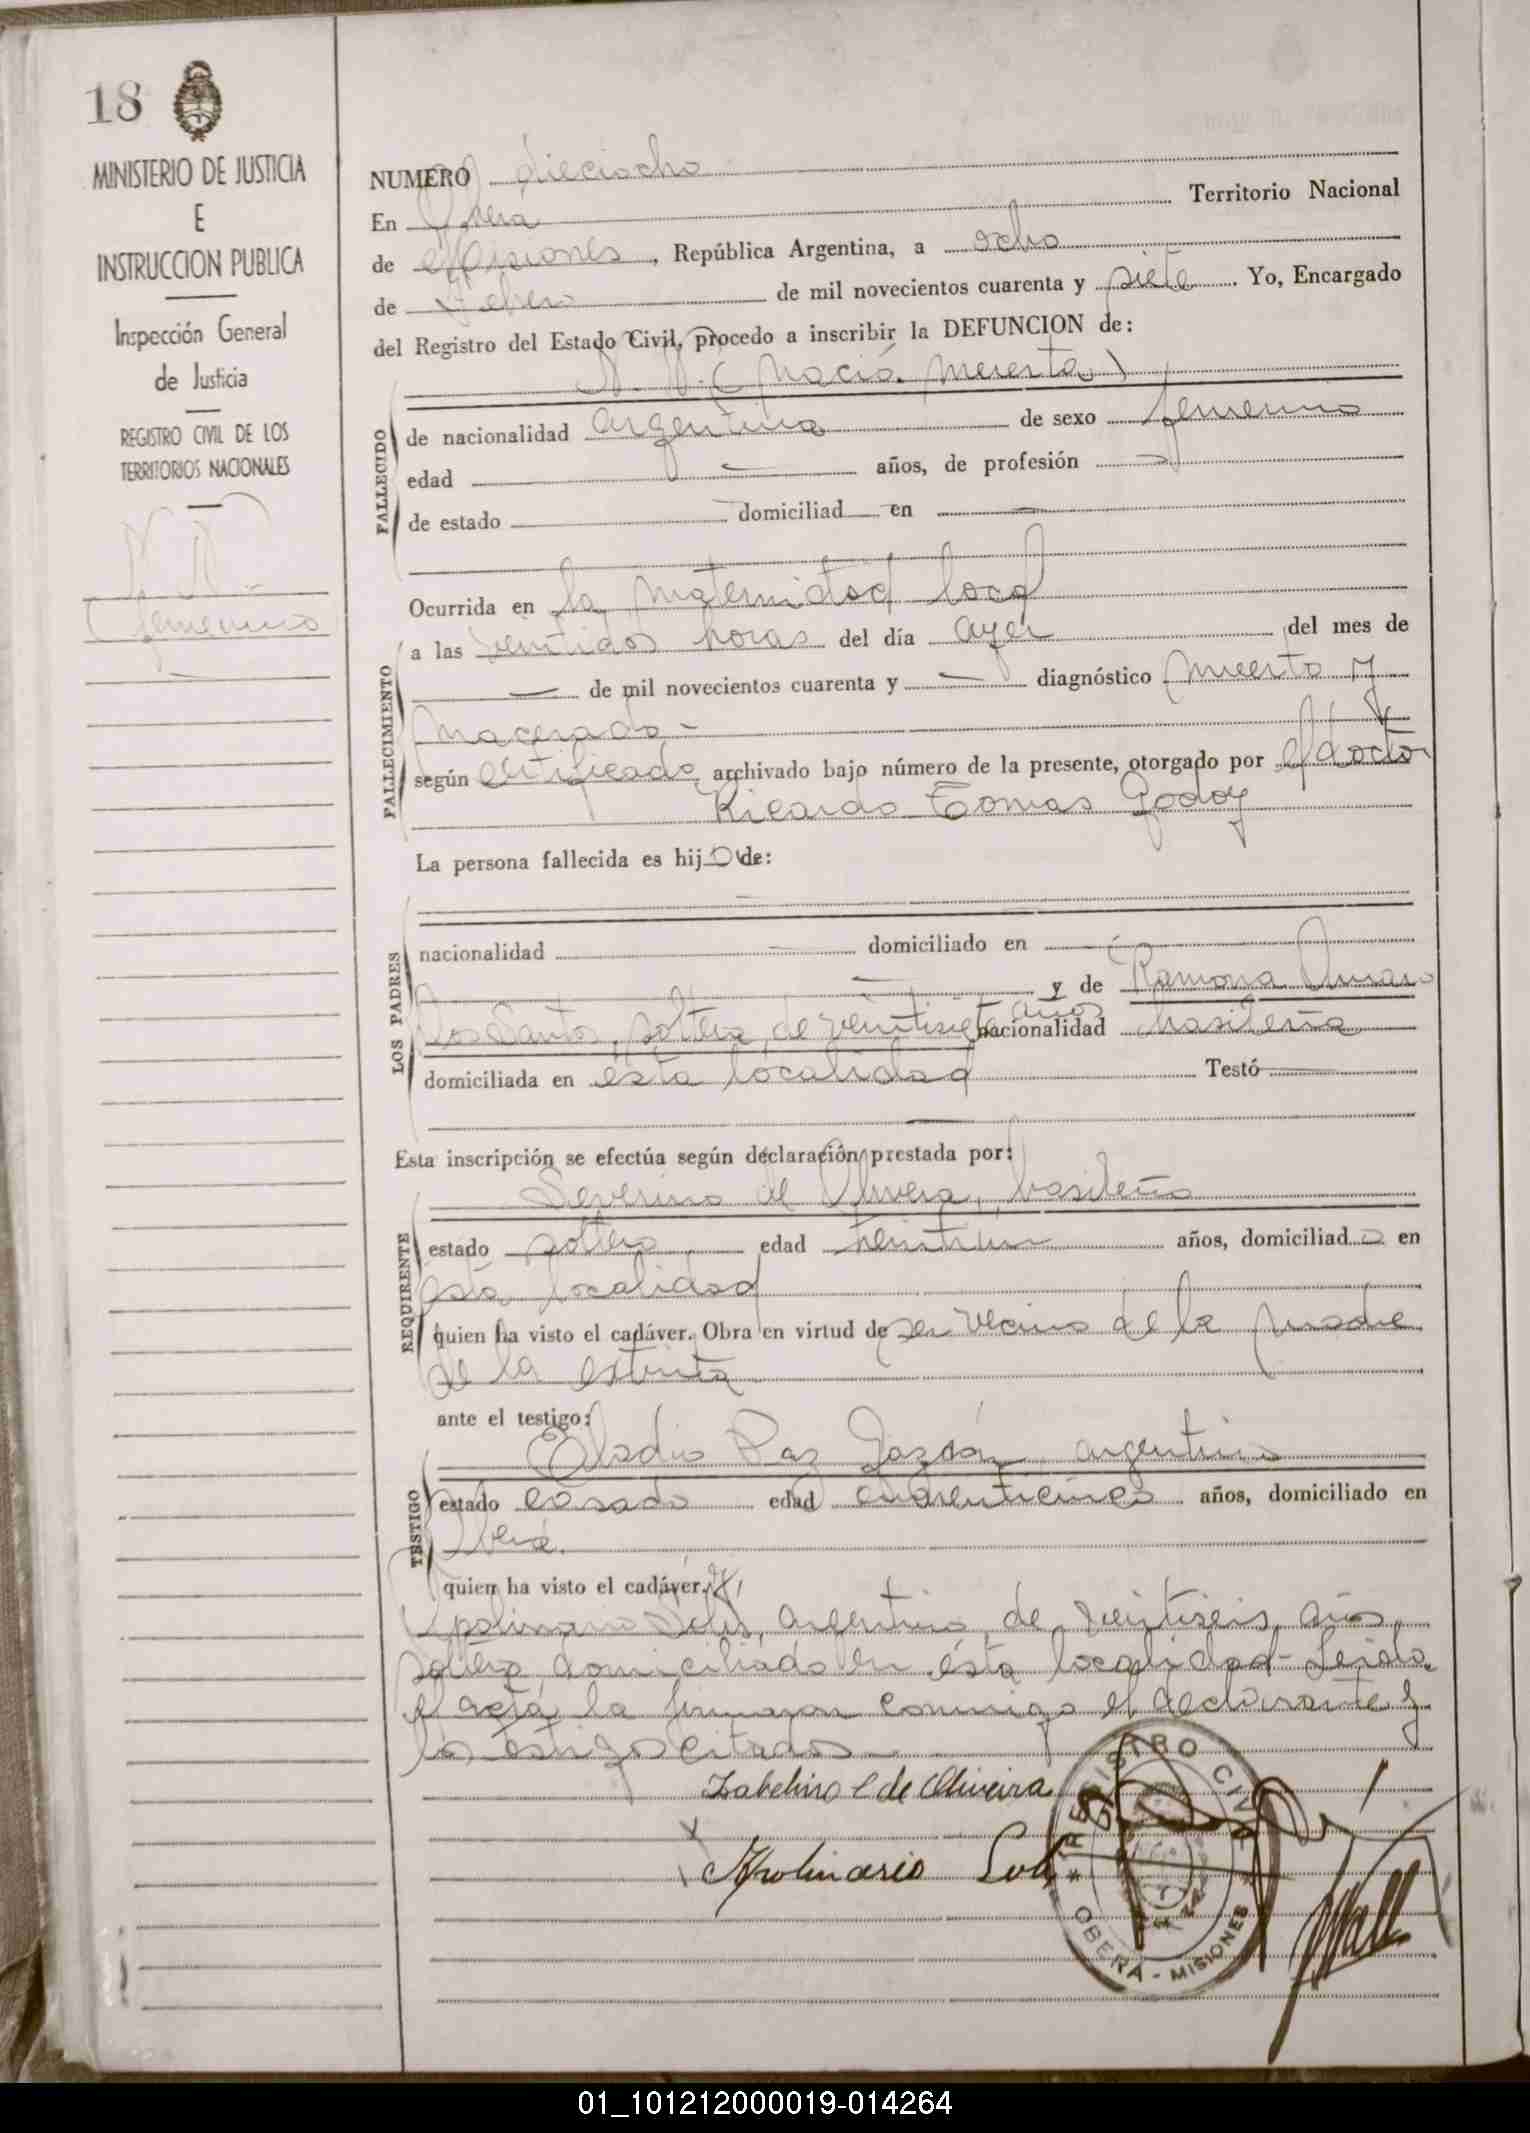 18
MINISTERIO DE JUSTICIA
E
INSTRUCCION PUBLICA
Inspección General
de Justicia
REGISTRO CIVIL DE LOS
TERRITORIOS NACIONALES
N. N.
(femenino
NUMERO dieciocho
En Oberá Territorio Nacional
de Misiones, República Argentina, a ocho
de Febrero de mil novecientos cuarenta y siete. Yo, Encargado
del Registro del Estado Civil, procedo a inscribir la DEFUNCION de:
N. N. (Nació muerta)
FALLECIDO
de nacionalidad argentina de sexo femenino
edad — años, de profesión —
de estado domiciliad en —
FALLECIMIENTO
Ocurrida en la maternidad local
a las veintidos horas del día ayer del mes de
— de mil novecientos cuarenta y — diagnóstico muerto y
macerado -
según certificado archivado bajo número de la presente, otorgado por el doctor
Ricardo Tomas Godoy
La persona fallecida es hijo de:
LOS PADRES
nacionalidad — domiciliado en —
— y de Ramona Amaro
Dos Santos, soltera, de veintisiete años nacionalidad brasileña
domiciliada en esta localidad Testó —
Esta inscripción se efectúa según declaración prestada por:
REQUIRENTE
Severino de Olivera, brasileño
estado soltero edad treintiun años, domiciliado en
esta localidad
quien ha visto el cadáver. Obra en virtud de ser vecino de la madre
de la extinta
ante el testigo:
TESTIGO
Eladio Paz Gazdón argentino
estado casado edad cuarenticinco años, domiciliado en
Oberá.
quien ha visto el cadáver. y
Apolinario Solis, argentino, de veintiseis años
soltero domiciliado en ésta localidad - Leida
el acta, la firman conmigo el declarante y
los testigos citados —
Isabelino C de Oliveira
Apolinario Solis
REGISTRO CIVIL
OBERÁ - MISIONES
01_101212000019-014264